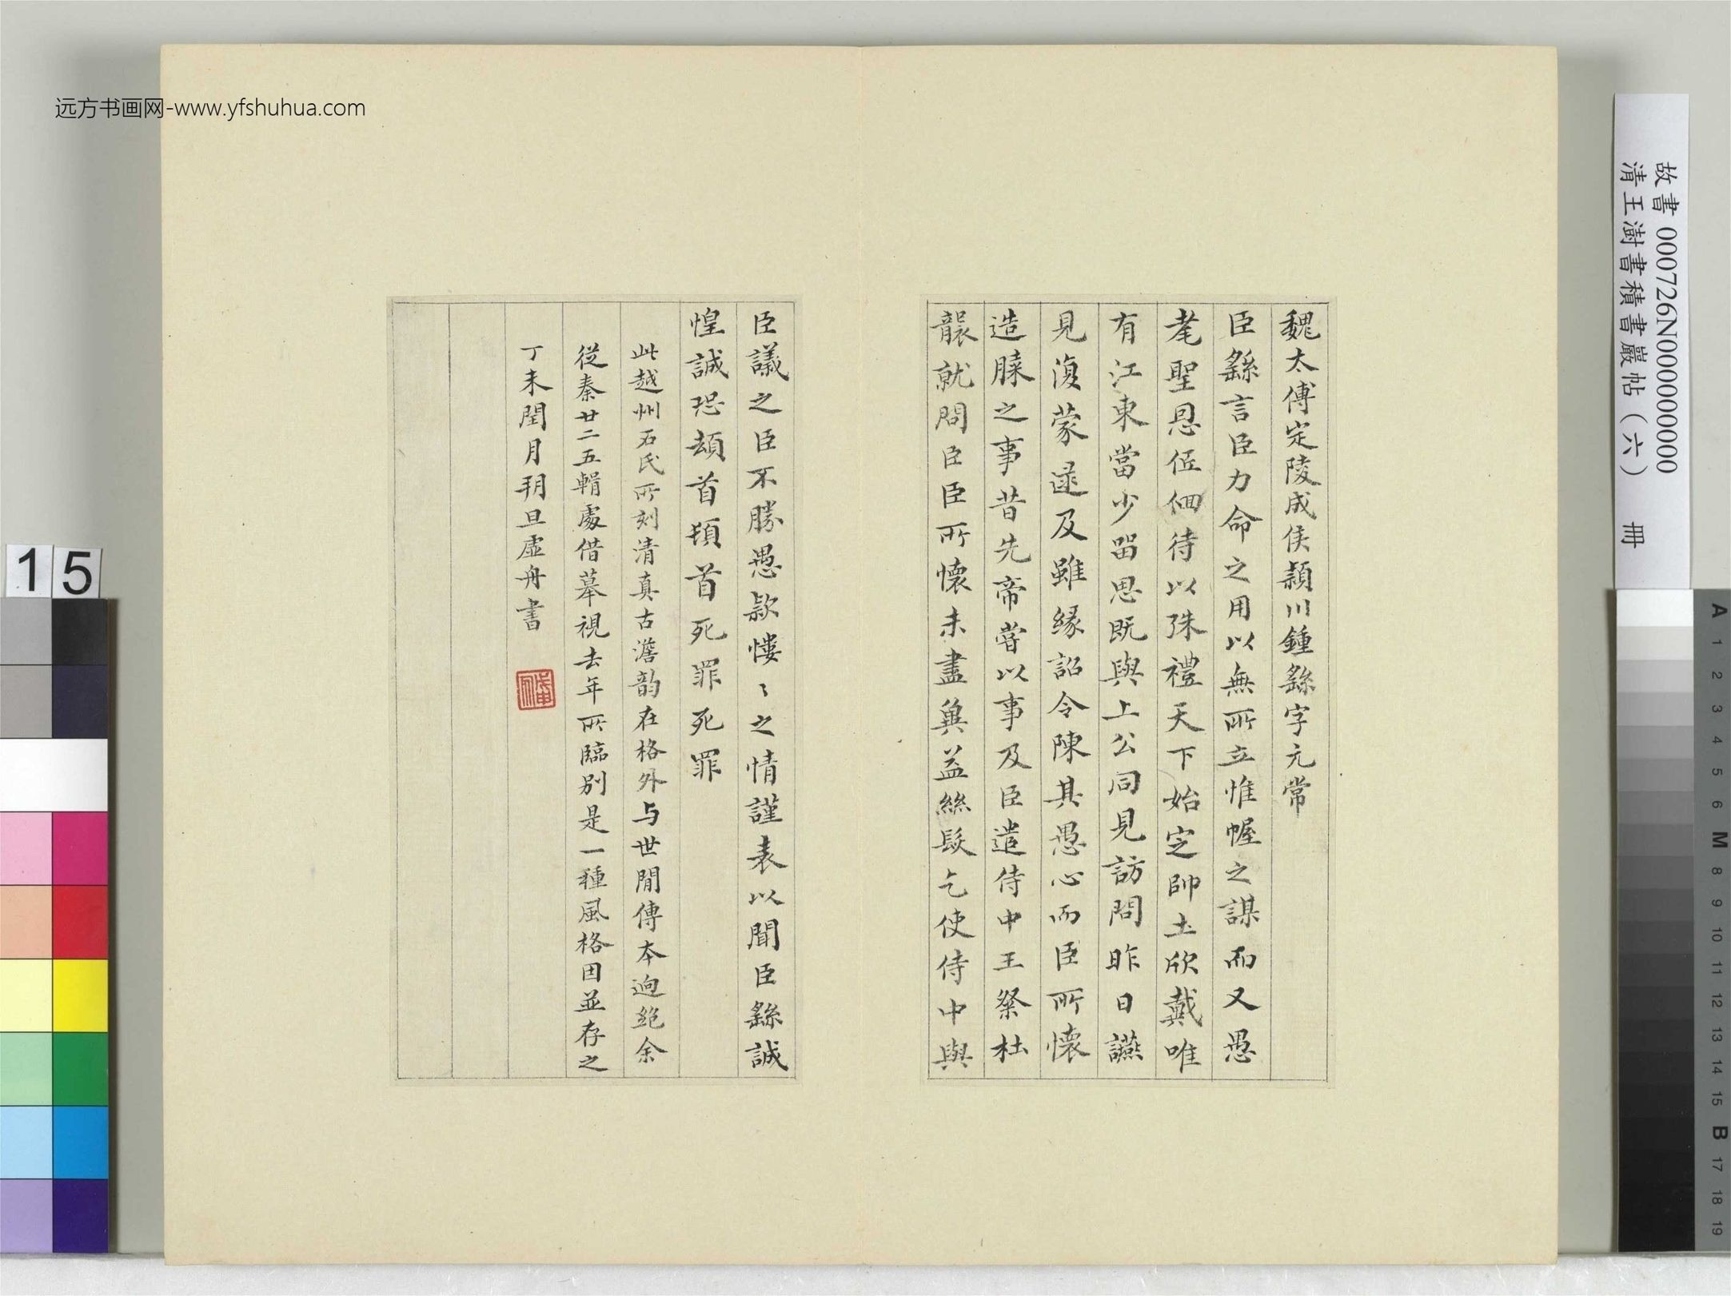 远方书画网-www.yfshuhua.com
故書 000726N000000000
清王澍書積書巖帖（六） 冊
魏太傅定陵成侯潁川鍾繇字元常
臣繇言臣力命之用以無所立惟幄之謀而又愚
耄聖恩伍佪待以殊禮天下始定帥土欣戴唯
有江東當少留思既與上公同見訪問昨日讌
見復蒙逮及雖緣詔令陳其愚心而臣所懷
造膝之事昔先帝嘗以事及臣遣侍中王粲杜
襲就問臣臣所懷未盡冀益絲髮乞使侍中與
臣議之臣不勝愚款慺〻之情謹表以聞臣繇誠
惶誠恐頓首頓首死罪死罪
此越州石氏所刻清真古澹韵在格外与世閒傳本迥絶余
從秦廿二五輯處借摹視去年所臨別是一種風格因並存之
丁未閏月朔旦虛舟書
15
A 1 2 3 4 5 6 M 8 9 10 11 12 13 14 15 B 17 18 19